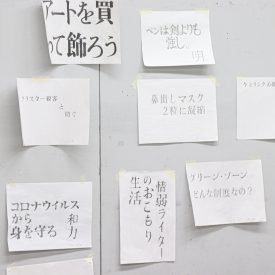 アートを買
って飾ろう
ペンは剣よりも
強し。
鼻出しマスク
2粒に凝縮
コロナウイルス
から 和
身を守る 力
情弱ライター
のおこもり
生活
グリーン・ゾーン
どんな制度なの?